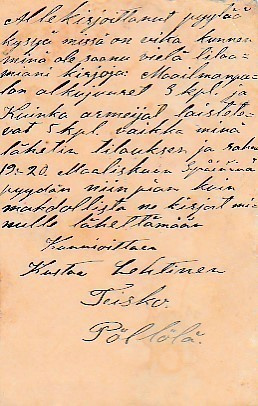 Alle kirjoittanut pyytää
kysyä missä on vika kunnen
minä ole saanu vielä tilaa-
miani kirjoja. Maailmanpa-
lon alkujuuret 3 kpl. ja
Kuinka armeijat taistele-
vat 5 kpl. vaikka minä
lähetin tilauksen ja rahan
19:20. Maaliskuun 3päivänä
pyydän niin pian kuin
mahdollista ne kirjat mi-
nulle lähettämään
Kunnioittaen
Kustaa Lehtinen
Teisko.
Pöllölä.